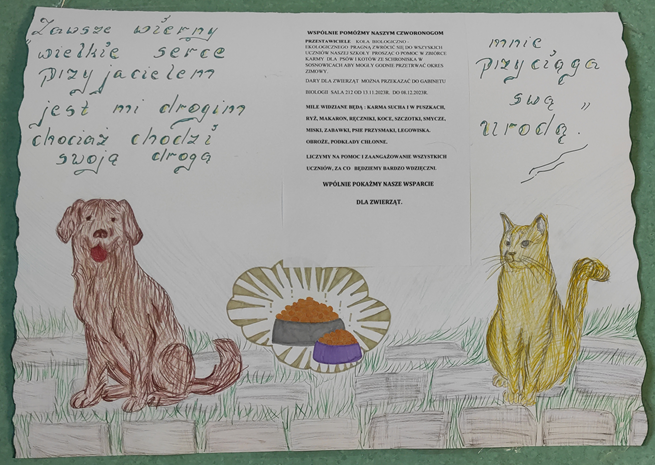 „Zawsze wierny
wielkie serce
przyjacielem
jest mi drogim
chociaż chodzi
swoją drogą
WSPÓLNIE POMÓŻMY NASZYM CZWORONOGOM
PRZEDSTAWICIELE KOŁA BIOLOGICZNO –
EKOLOGICZNEGO PRAGNĄ ZWRÓCIĆ SIĘ DO WSZYSTKICH
UCZNIÓW NASZEJ SZKOŁY PROSZĄC O POMOC W ZBIÓRCE
KARMY DLA PSÓW I KOTÓW ZE SCHRONISKA W
SOSNOWCACH ABY MOGŁY GODNIE PRZETRWAĆ OKRES
ZIMOWY.
DARY DLA ZWIERZĄT MOŻNA PRZEKAZAĆ DO GABINETU
BIOLOGII SALA 212 OD 13.11.2023R. DO 08.12.2023R.
MILE WIDZIANE BĘDĄ : KARMA SUCHA I W PUSZKACH,
RYŻ, MAKARON, RĘCZNIKI, KOCE, SZCZOTKI, SMYCZE,
MISKI, ZABAWKI, PSIE PRZYSMAKI, LEGOWISKA.
OBROŻE, PODKŁADY CHŁONNE.
LICZYMY NA POMOC I ZAANGAŻOWANIE WSZYSTKICH
UCZNIÓW, ZA CO BĘDZIEMY BARDZO WDZIĘCZNI.
WPÓLNIE POKAŻMY NASZE WSPARCIE
DLA ZWIERZĄT.
mnie
przyciąga
swą „
urodą.